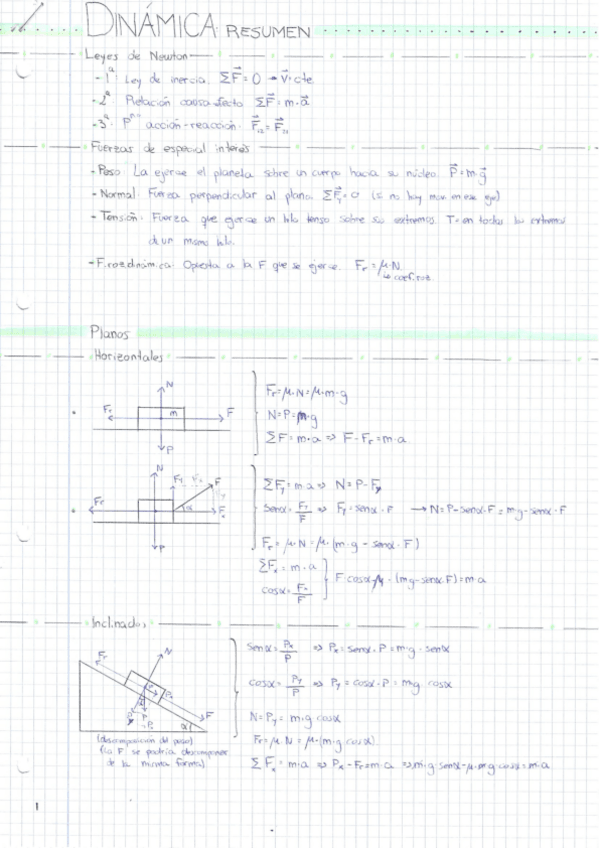 DINÁMICA RESUMEN
Leyes de Newton
- 1ª Ley de inercia. ΣF⃗ = 0 → v⃗ = cte
- 2ª Relación causa-efecto ΣF⃗ = m·a⃗
- 3ª acción-reacción. F⃗₁₂ = F⃗₂₁
Fuerzas de especial interés
- Peso. La ejerce el planeta sobre un cuerpo hacia su núcleo. P⃗ = m·g⃗
- Normal. Fuerza perpendicular al plano. ΣF⃗y = 0 (si no hay mov en ese eje)
- Tensión. Fuerza que ejerce un hilo tenso sobre sus extremos. T = en todos los extremos
de un mismo hilo.
- F. roz. dinámica. Opuesta a la F que se ejerce. Fr = μ·N.
↳ coef. roz.
Planos
Horizontales
N
Fr m F
P
Fr = μ·N = μ·m·g
N = P = m·g
ΣF = m·a ⇒ F - Fr = m·a
N
Fy F
Fr α Fx
P
ΣFy = m·a ⇒ N = P - Fy
senα = Fy/F ⇒ Fy = senα·F → N = P - senα·F = m·g - senα·F
Fr = μ·N = μ·(m·g - senα·F)
ΣFx = m·a
cosα = Fx/F
F·cosα - μ·(mg - senα·F) = m·a
Inclinados
Fr N
Px
F
Py P α
(descomposición del peso)
(la F se podría descomponer
de la misma forma)
senα = Px/P ⇒ Px = senα·P = m·g·senα
cosα = Py/P ⇒ Py = cosα·P = m·g·cosα
N = Py = m·g·cosα
Fr = μ·N = μ·(m·g·cosα)
ΣFx = m·a ⇒ Px - Fr = m·a ⇒ m·g·senα - μ·m·g·cosα = m·a
1